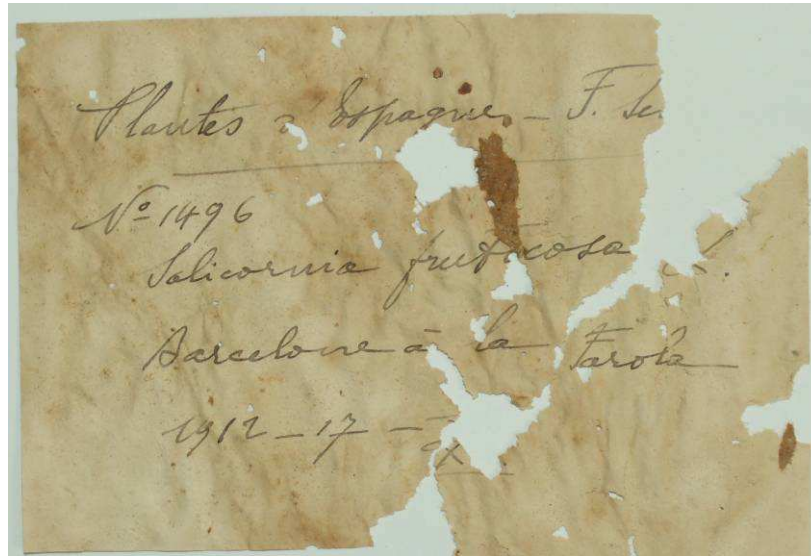 Plantes d'Espagne – F. Se
Nº 1496
Salicornia fruticosa L.
Barcelone à la Farola
1912 – 17 – X.